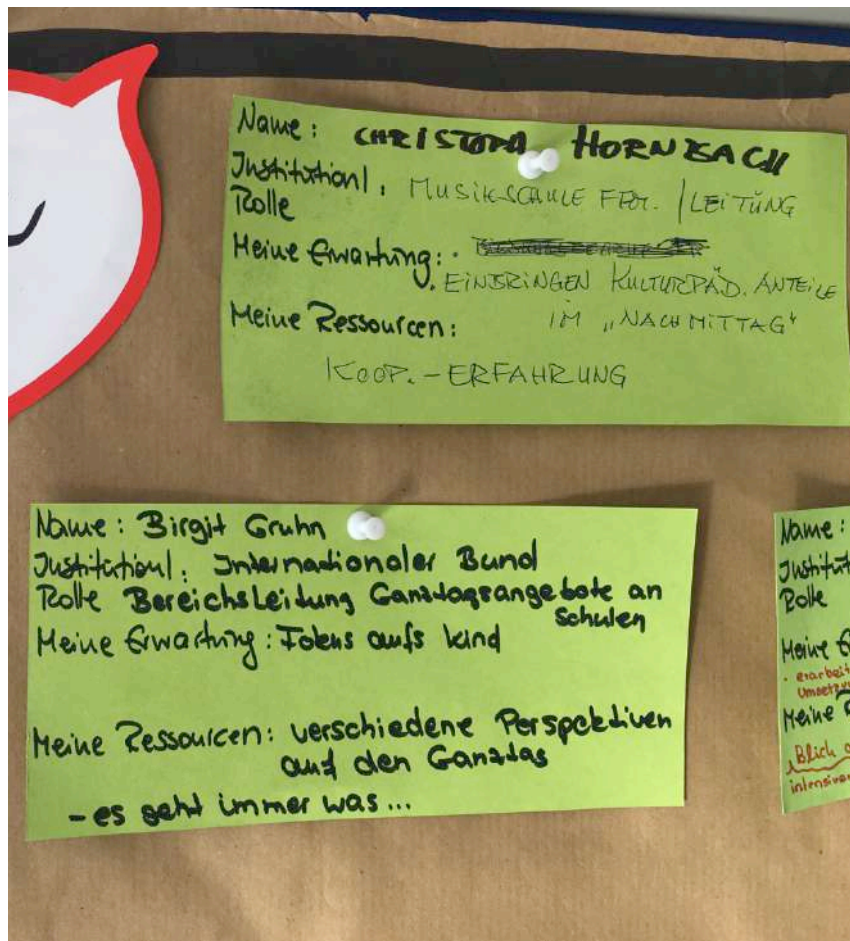 Name: CHRISTOPH HORNBACH
Institution/:
Rolle MUSIKSCHULE FFM. / LEITUNG
Meine Erwartung: ·
· EINBRINGEN KULTURPÄD. ANTEILE
Meine Ressourcen: IM „NACHMITTAG"
KOOP. - ERFAHRUNG
Name: Birgit Gruhn
Institution/: Internationaler Bund
Rolle Bereichsleitung Ganztagsangebote an
Schulen
Meine Erwartung: Fokus aufs Kind
Meine Ressourcen: verschiedene Perspektiven
auf den Ganztag
- es geht immer was...
Name:
Rolle
Meine
Meine
Blick